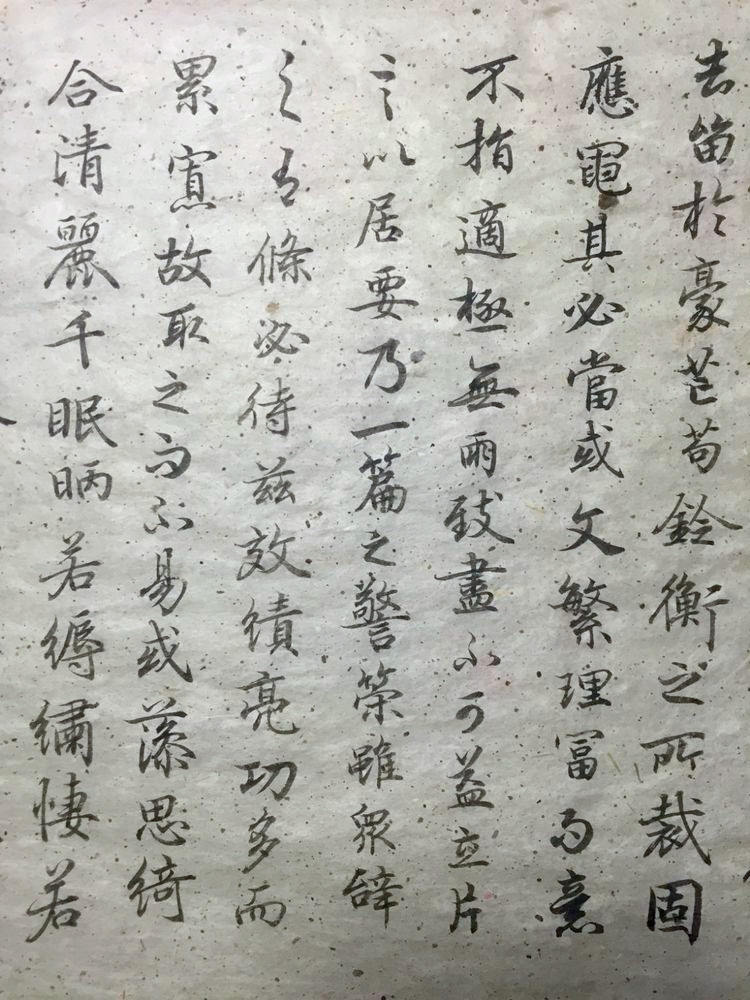 去留於豪芒苟銓衡之所裁固
應黽其必當或文繁理富而意
不指適極無兩致盡不可益立片
言以居要乃一篇之警策雖眾辭
之有條必待茲效績亮功多而
累寡故取之而不易或藻思綺
合清麗千眠昞若縟繡悽若